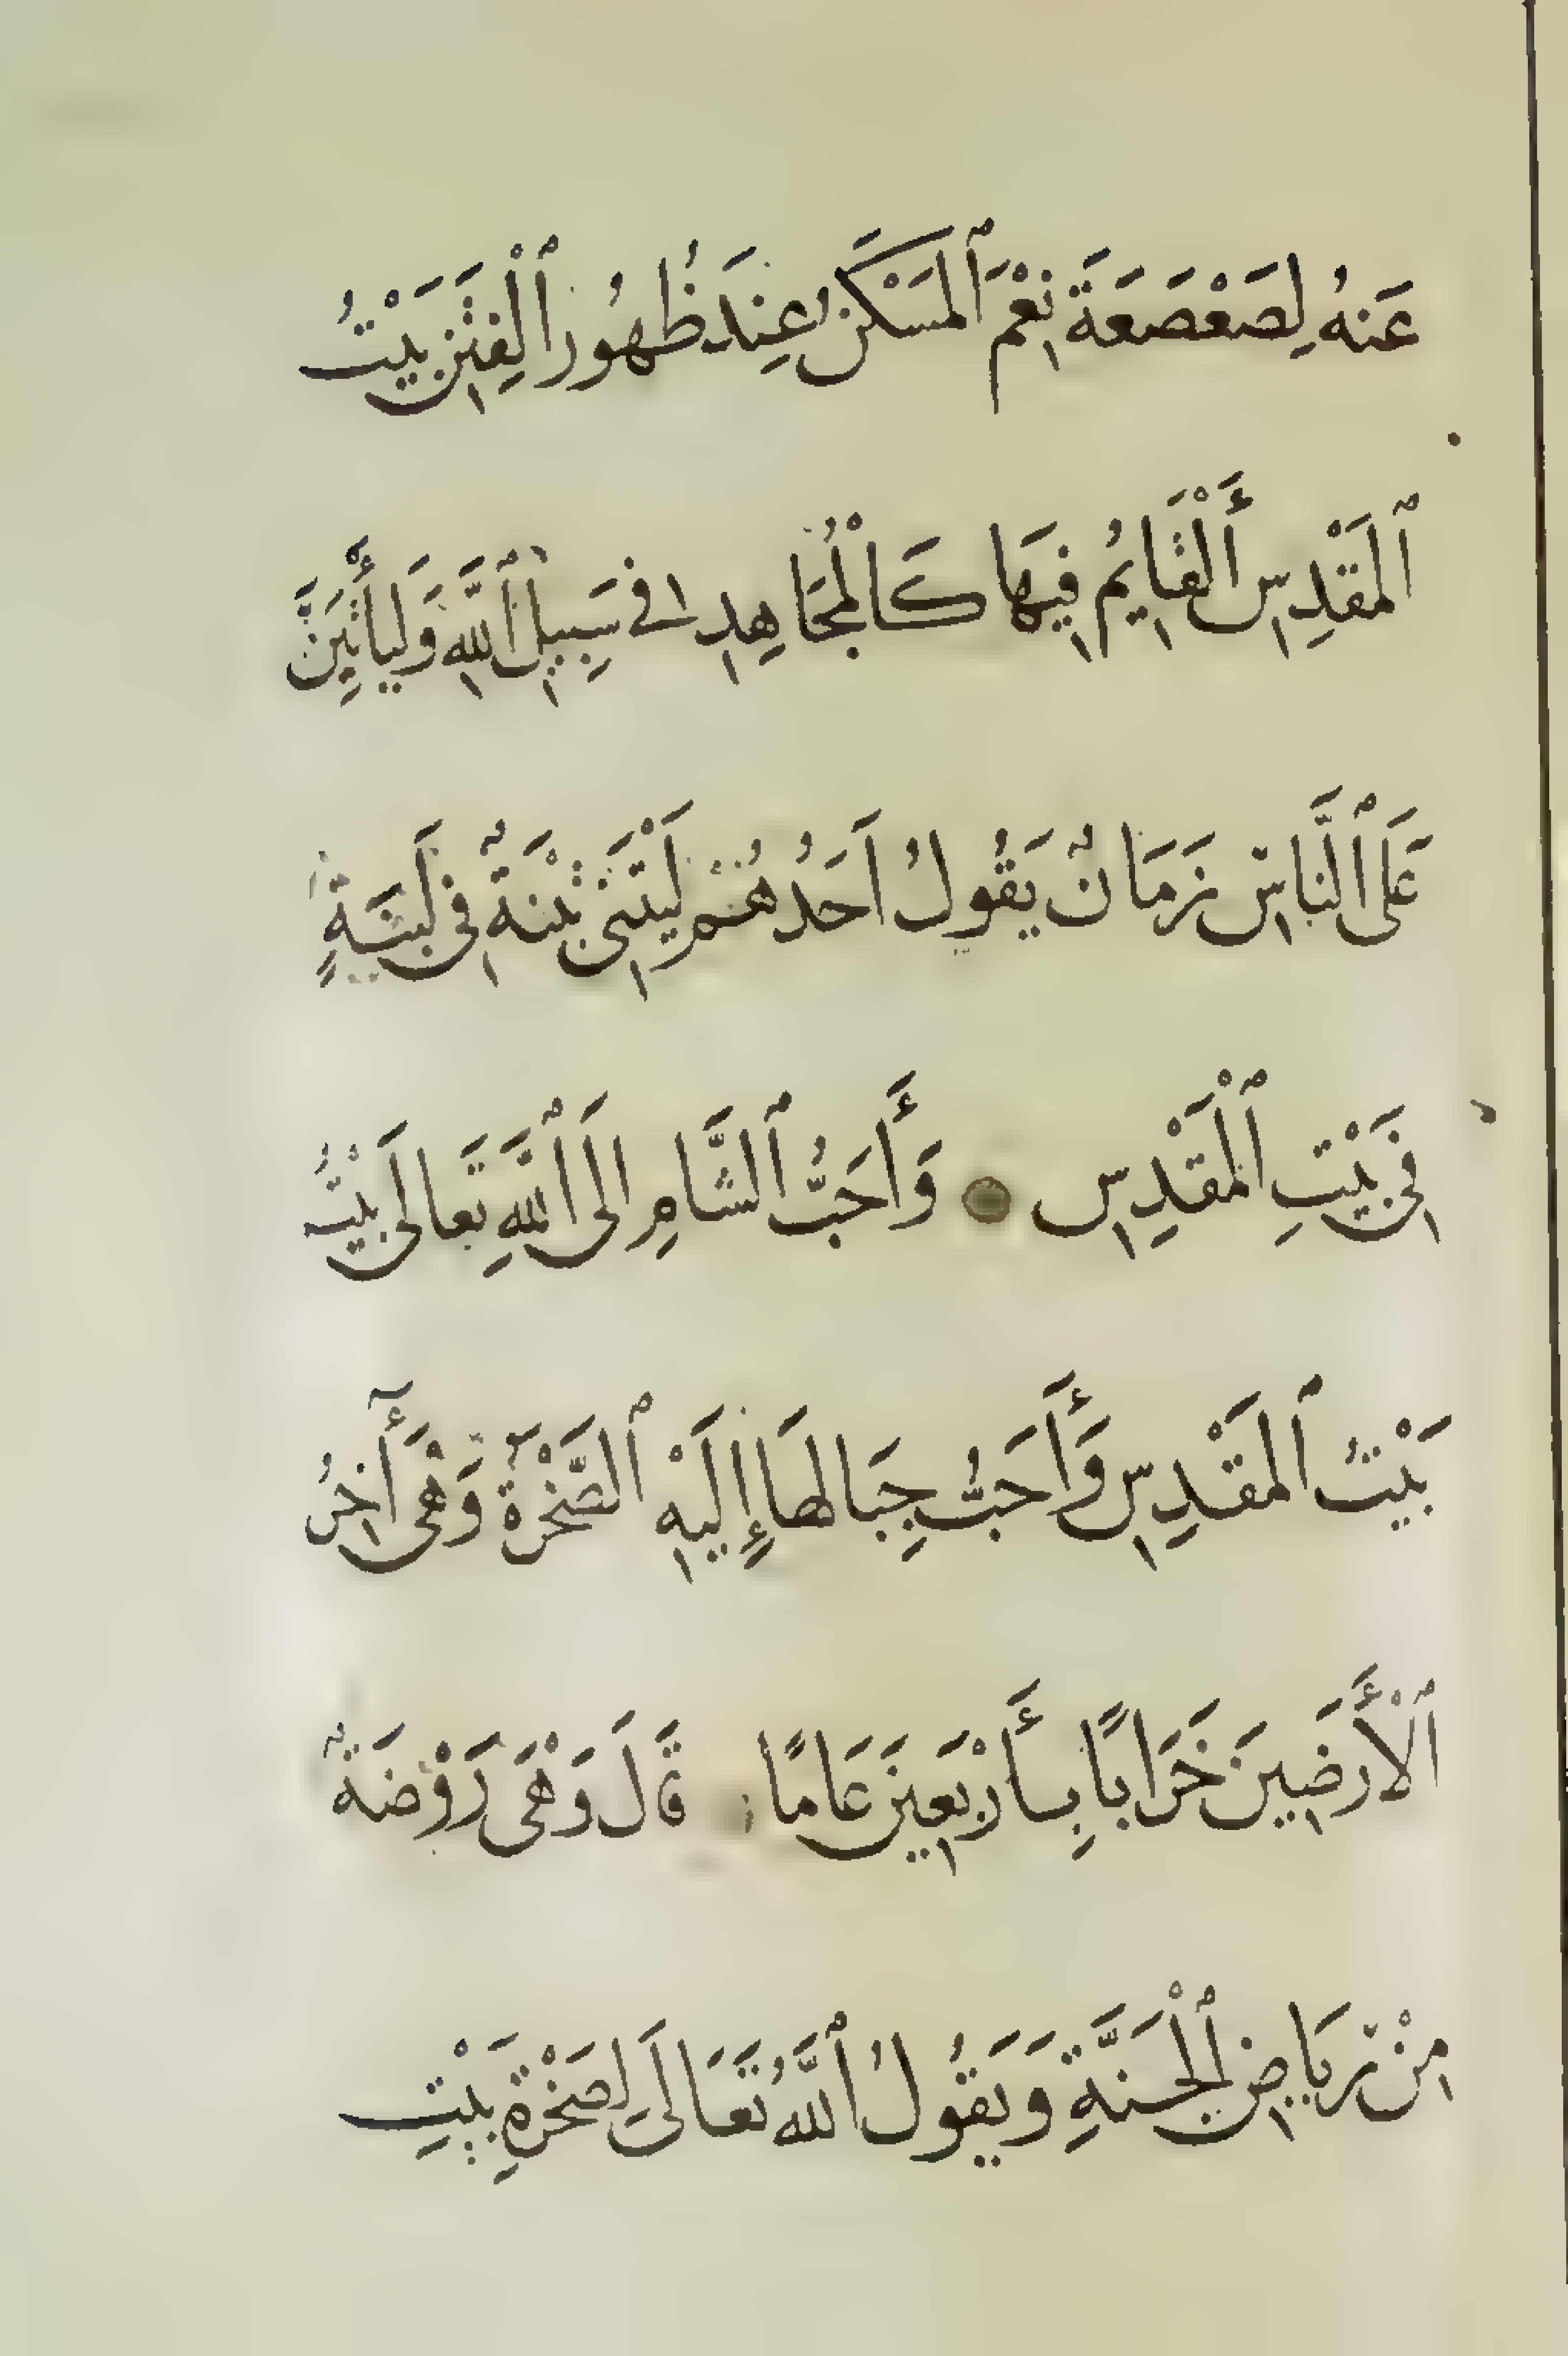 عَنهُ لِصَعْصَعَةَ نِعْمَ ٱلمَسْكَنُ عِندَ ظُهُورِ ٱلْفِتَنِ بَيْتُ
ٱلمَقْدِسِ أَلْقَايِمُ فِيهَا كَالْمُجَاهِدِ فى سَبِيلِ ٱللَّهِ وَليَأتِيَنَّ
عَلَى ٱلنَّاسِ زَمَانٌ يَقُولُ اَحَدُهُم لَيْتَنِى تِبْنَةٌ فِى لَبِنَةٍ
فِى بَيْتِ ٱلْمَقْدِسِ وَأَحَبُّ ٱلشَّامِ الَى ٱللَّهِ تَعَالَى بَيْتُ
بَيْتُ ٱلمَقْدِسِ وَأَحَبُّ جِبَالهَا إِلَيْهِ ٱلصَّخْرَةُ وَهْىَ أٓخِرُ
ٱلْأَرَضِينَ خَرَابًا بِأَرْبَعِينَ عَامًا قَالَ وَهْىَ رَوْضَةٌ
مِنْ رِيَاضِ ٱلْجَنَّةِ وَيَقُولُ ٱللَّهُ تَعَالَى لِصَخْرَةِ بَيْتِ